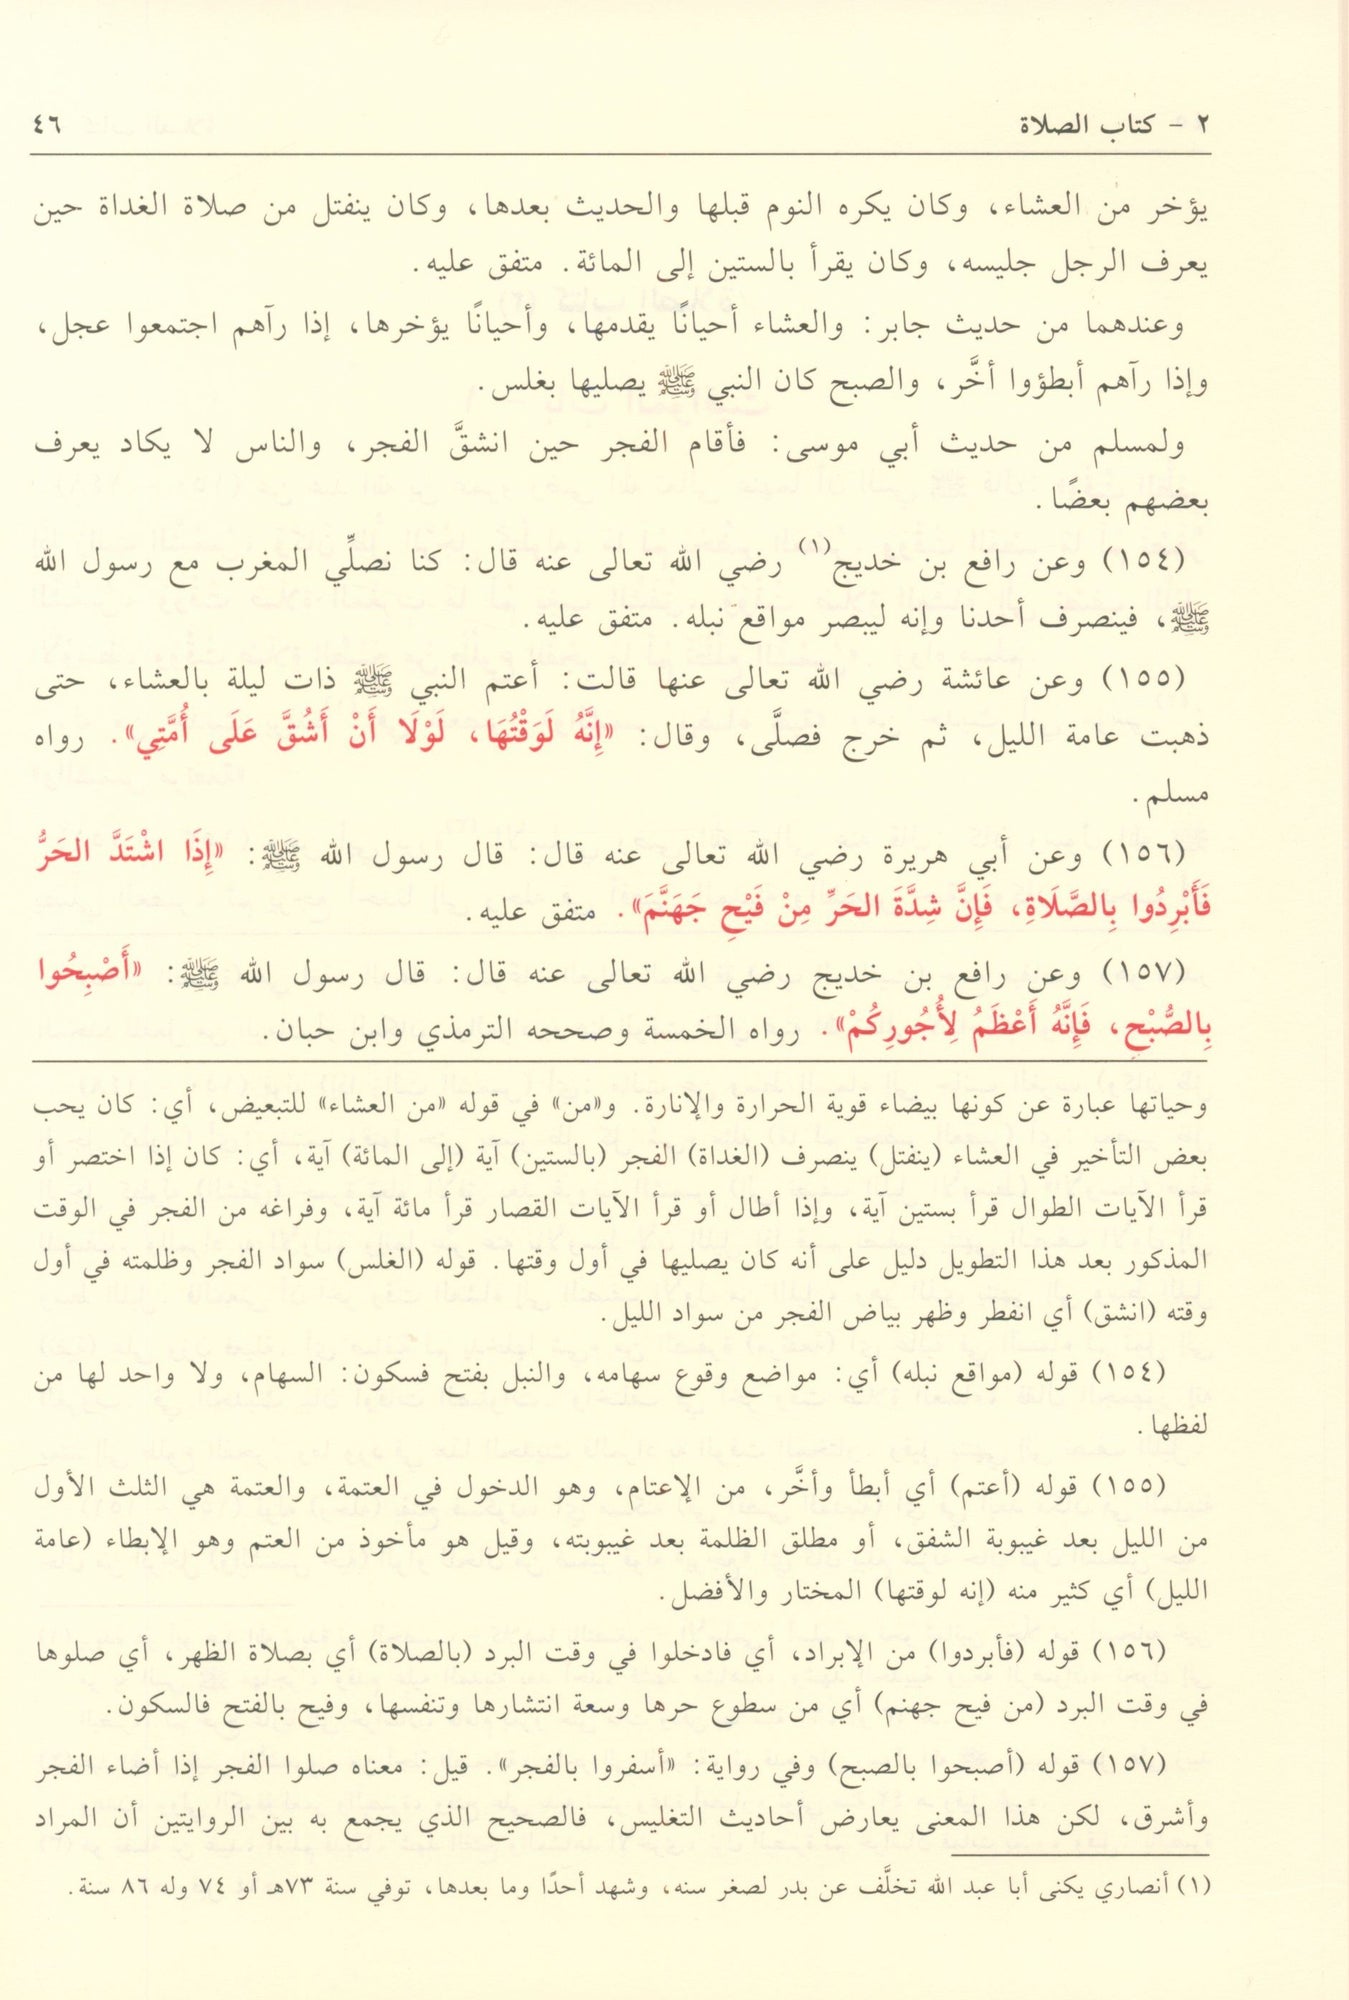 ٢ - كتاب الصلاة ٤٦
يؤخر من العشاء، وكان يكره النوم قبلها والحديث بعدها، وكان ينفتل من صلاة الغداة حين
يعرف الرجل جليسه، وكان يقرأ بالستين إلى المائة. متفق عليه.
وعندهما من حديث جابر: والعشاء أحيانًا يقدمها، وأحيانًا يؤخرها، إذا رآهم اجتمعوا عجل،
وإذا رآهم أبطؤوا أخَّر، والصبح كان النبي ﷺ يصليها بغلس.
ولمسلم من حديث أبي موسى: فأقام الفجر حين انشقَّ الفجر، والناس لا يكاد يعرف
بعضهم بعضًا.
(١٥٤) وعن رافع بن خديج(١) رضي الله تعالى عنه قال: كنا نصلِّي المغرب مع رسول الله
ﷺ، فينصرف أحدنا وإنه ليبصر مواقع نبله. متفق عليه.
(١٥٥) وعن عائشة رضي الله تعالى عنها قالت: أعتم النبي ﷺ ذات ليلة بالعشاء، حتى
ذهبت عامة الليل، ثم خرج فصلَّى، وقال: «إِنَّهُ لَوَقْتُهَا، لَوْلَا أَنْ أَشُقَّ عَلَى أُمَّتِي». رواه
مسلم.
(١٥٦) وعن أبي هريرة رضي الله تعالى عنه قال: قال رسول الله ﷺ: «إِذَا اشْتَدَّ الحَرُّ
فَأَبْرِدُوا بِالصَّلَاةِ، فَإِنَّ شِدَّةَ الحَرِّ مِنْ فَيْحِ جَهَنَّمَ». متفق عليه.
(١٥٧) وعن رافع بن خديج رضي الله تعالى عنه قال: قال رسول الله ﷺ: «أَصْبِحُوا
بِالصُّبْحِ، فَإِنَّهُ أَعْظَمُ لِأُجُورِكُمْ». رواه الخمسة وصححه الترمذي وابن حبان.
وحياتها عبارة عن كونها بيضاء قوية الحرارة والإنارة. و«من» في قوله «من العشاء» للتبعيض، أي: كان يحب
بعض التأخير في العشاء (ينفتل) ينصرف (الغداة) الفجر (بالستين) آية (إلى المائة) آية، أي: كان إذا اختصر أو
قرأ الآيات الطوال قرأ بستين آية، وإذا أطال أو قرأ الآيات القصار قرأ مائة آية، وفراغه من الفجر في الوقت
المذكور بعد هذا التطويل دليل على أنه كان يصليها في أول وقتها. قوله (الغلس) سواد الفجر وظلمته في أول
وقته (انشق) أي انفطر وظهر بياض الفجر من سواد الليل.
(١٥٤) قوله (مواقع نبله) أي: مواضع وقوع سهامه، والنبل بفتح فسكون: السهام، ولا واحد لها من
لفظها.
(١٥٥) قوله (أعتم) أي أبطأ وأخَّر، من الإعتام، وهو الدخول في العتمة، والعتمة هي الثلث الأول
من الليل بعد غيبوبة الشفق، أو مطلق الظلمة بعد غيبوبته، وقيل هو مأخوذ من العتم وهو الإبطاء (عامة
الليل) أي كثير منه (إنه لوقتها) المختار والأفضل.
(١٥٦) قوله (فأبردوا) من الإبراد، أي فادخلوا في وقت البرد (بالصلاة) أي بصلاة الظهر، أي صلوها
في وقت البرد (من فيح جهنم) أي من سطوع حرها وسعة انتشارها وتنفسها، وفيح بالفتح فالسكون.
(١٥٧) قوله (أصبحوا بالصبح) وفي رواية: «أسفروا بالفجر». قيل: معناه صلوا الفجر إذا أضاء الفجر
وأشرق، لكن هذا المعنى يعارض أحاديث التغليس، فالصحيح الذي يجمع به بين الروايتين أن المراد
(١) أنصاري يكنى أبا عبد الله تخلَّف عن بدر لصغر سنه، وشهد أحدًا وما بعدها، توفي سنة ٧٣هـ أو ٧٤ وله ٨٦ سنة.